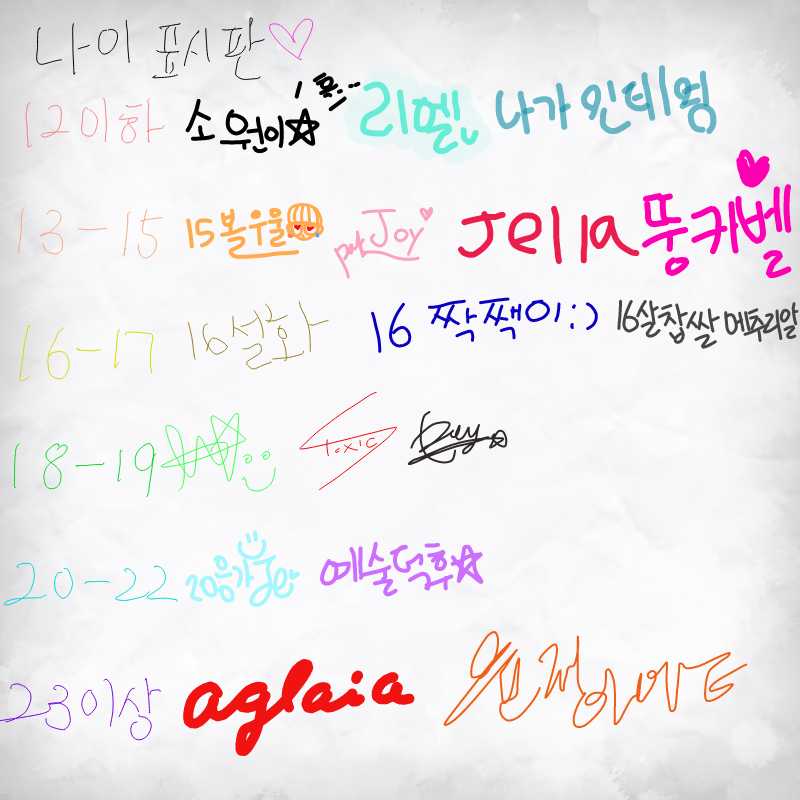 나이 표시판♡
12이하 소원이☆ 1 흑... 리멜 나가 인테웡
13-15 15볼우울 pet Joy♡ Jella 뚱카벨
16-17 16설화 16 짹짹이:) 16살찹쌀 메추리알
18-19 toxic Ray☆
20-22 20응가 예술덕후☆
23이상 aglaia